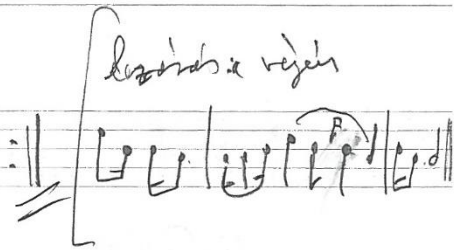 lezárás a végén
F